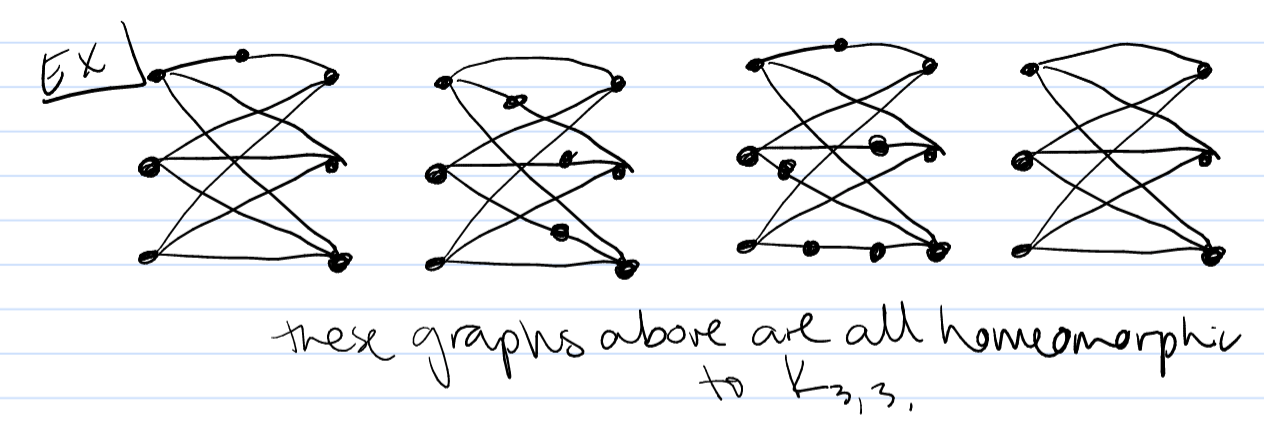 EX
these graphs above are all homeomorphic
to K₃,₃.